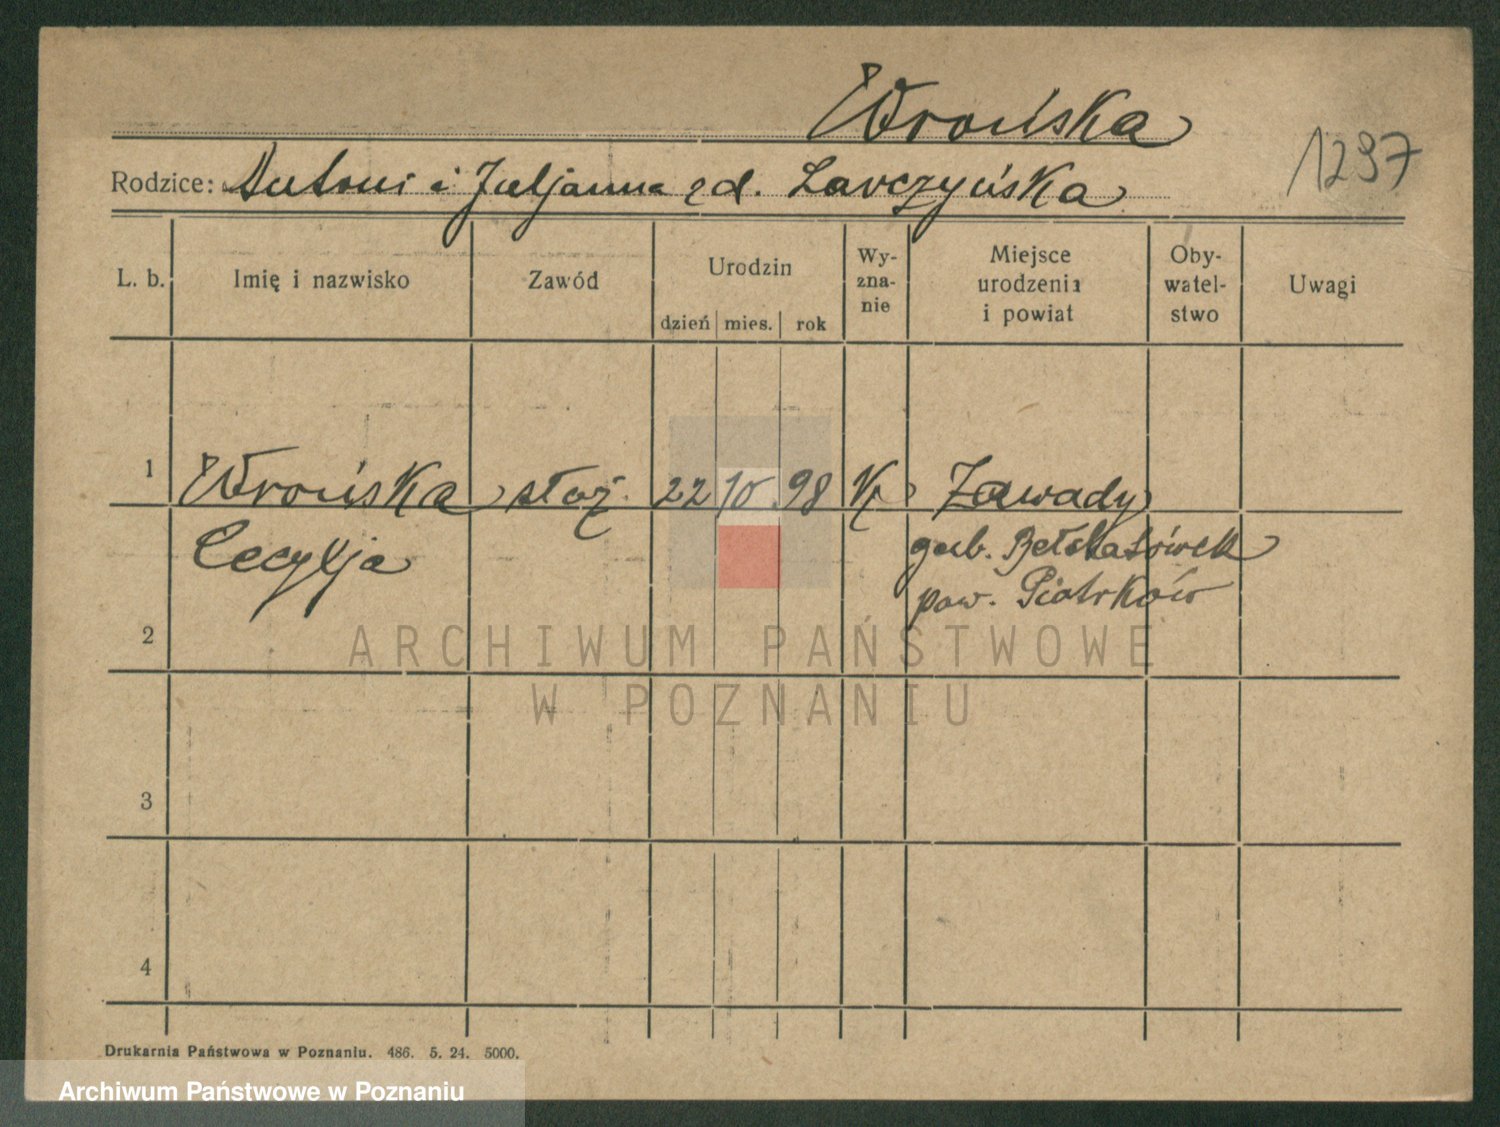 Wrońska
1297
Rodzice: Antoni i Juljanna zd. Larczyńska
L. b. Imię i nazwisko Zawód Urodzin dzień mies. rok Wy-zna-nie Miejsce urodzenia i powiat Oby-watel-stwo Uwagi
1 Wrońska służ. 22 10 98 K Zawady
Cecylja gub. Bełchatówek
pow. Piotrków
2
ARCHIWUM PAŃSTWOWE
W POZNANIU
3
4
Drukarnia Państwowa w Poznaniu. 486. 5. 24. 5000.
Archiwum Państwowe w Poznaniu